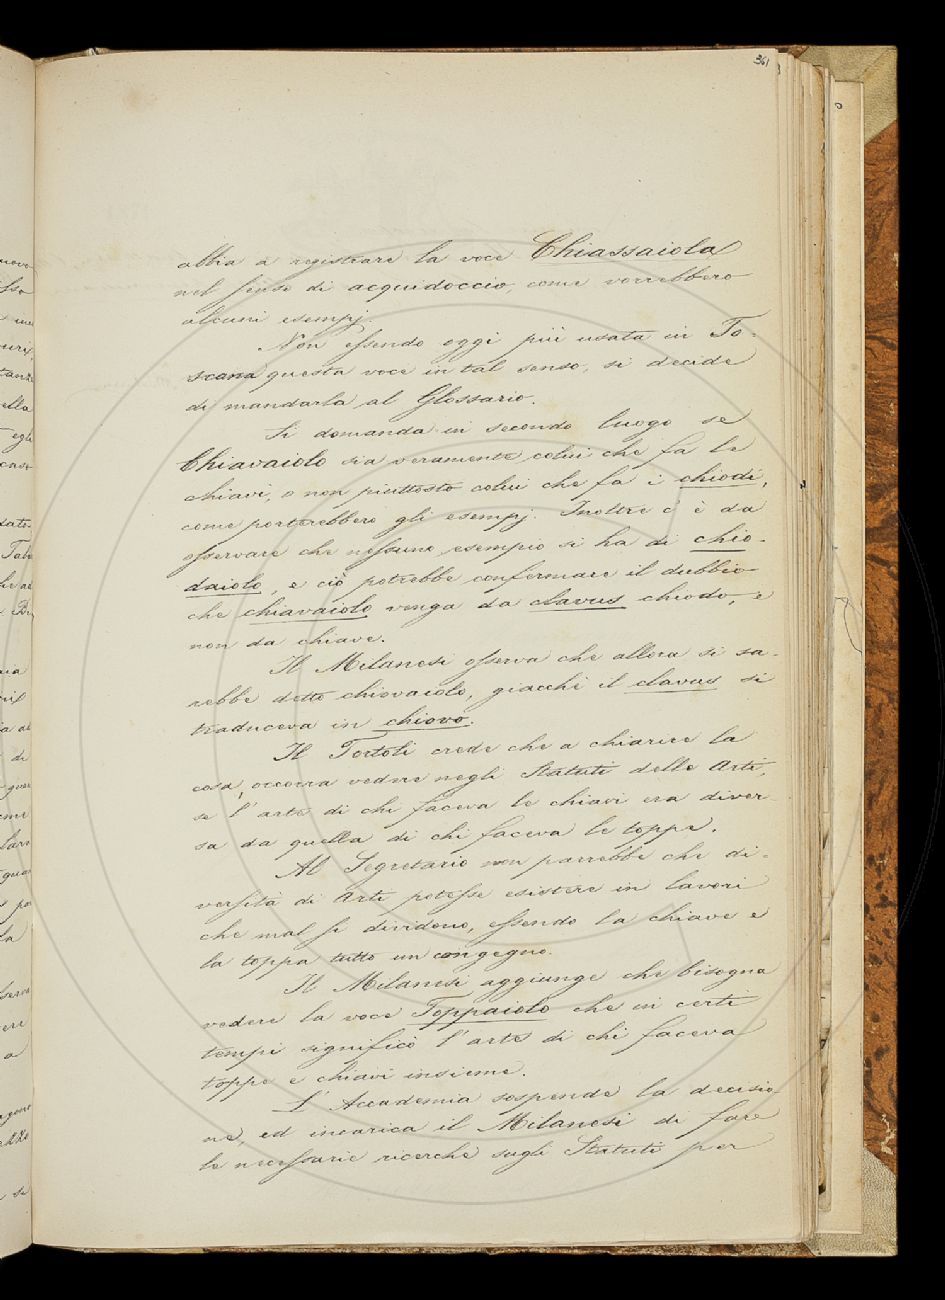 361
abbia a registrare la voce Chiassaiola
nel senso di acquidoccio, come vorrebbero
alcuni esempj.
Non essendo oggi più usata in To-
scana questa voce in tal senso, si decide
di mandarla al Glossario.
Si domanda in secondo luogo se
Chiavaiolo sia veramente colui che fa le
chiavi, o non piuttosto colui che fa i chiodi,
come porterebbero gli esempj. Inoltre c'è da
osservare che nessuno esempio si ha di chio-
daiolo, e ciò potrebbe confermare il dubbio
che chiavaiolo venga da clavus chiodo, e
non da chiave.
Il Milanesi osserva che allora si sa-
rebbe detto chiovaiolo, giacchè il clavus si
traduceva in chiovo.
Il Tortoli crede che a chiarire la
cosa, occorra vedere negli Statuti delle Arti,
se l'arte di chi faceva le chiavi era diver
sa da quella di chi faceva le toppe.
Al Segretario non parrebbe che di-
versità di Arti potesse esistere in lavori
che mal si dividono, essendo la chiave e
la toppa tutto un congegno.
Il Milanesi aggiunge che bisogna
vedere la voce Toppaiolo che in certi
tempi significò l'arte di chi faceva
toppe e chiavi insieme.
L'Accademia sospende la decisio
ne, ed incarica il Milanesi di fare
le necessarie ricerche sugli Statuti per